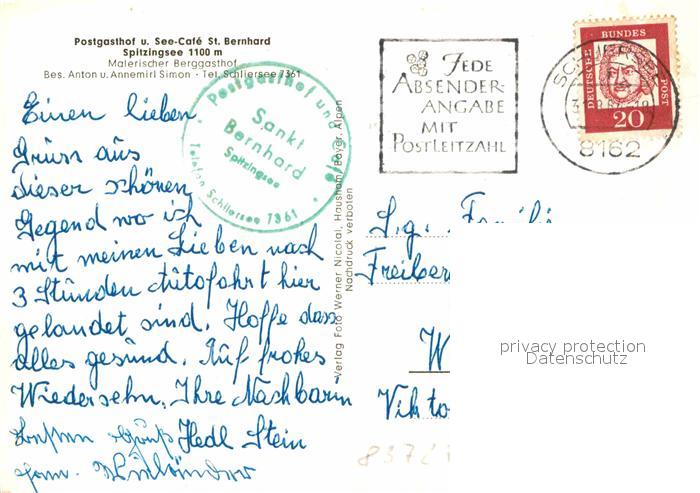 Postgasthof u. See-Café St. Bernhard
Spitzingsee 1100 m
Malerischer Berggasthof
Bes. Anton u. Annemirl Simon · Tel. Schliersee 7361
Einen lieben
Gruss aus
dieser schönen
Gegend wo ich
mit meinen Lieben nach
3 Stunden Autofahrt hier
gelandet sind. Hoffe dass
alles gesund. Auf frohes
Wiedersehn. Ihre Nachbarin
Hedl Stein
Postgasthof und
Sankt
Bernhard
Spitzingsee
Telefon Schliersee 7361
Verlag Foto Werner Nicolai, Hausham, Bayer. Alpen
Nachdruck verboten
JEDE
ABSENDER-
ANGABE
MIT
POSTLEITZAHL
SCHLIERSEE
8162
DEUTSCHE BUNDESPOST
20
S.g. Familie
Freiber
W
Vikto
privacy protection
Datenschutz